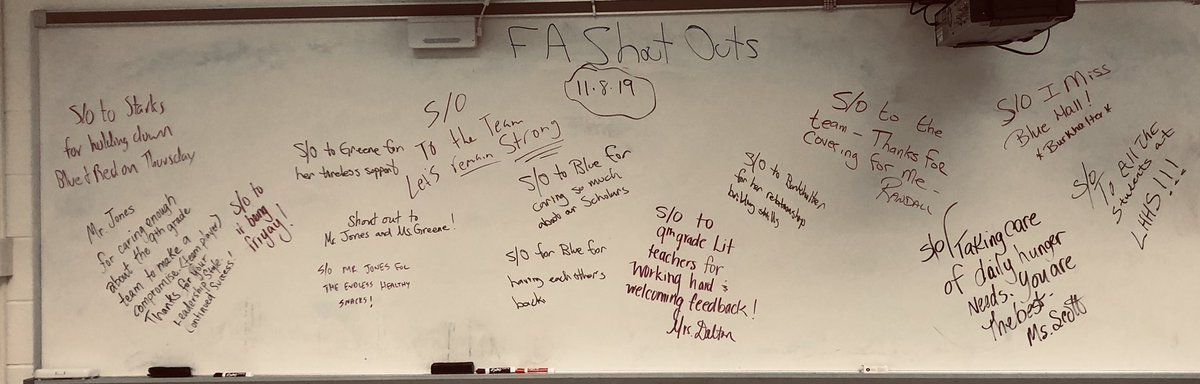 FA Shout Outs
11.8.19
S/o to Starks
for holding down
Blue & Red on Thursday
Mr. Jones
for caring enough
about the 9th grade
team to make a
compromise. (team player)
Thanks for your
Leadership Style
Continued Success!
S/o to
it being
friyay!
S/o to Greene for
her tireless support
Shout out to
Mr Jones and Ms. Greene!
S/O MR. JONES FOR
THE ENDLESS HEALTHY
SNACKS!
S/O
To the Team
Let's remain Strong
S/o to Blue for
caring so much
about our Scholars
S/o for Blue for
having each other's
backs
S/O to
9th grade Lit
teachers for
working hard &
welcoming feedback!
Mrs. Dalton
S/o to Burkhalter
for her relationship
building skills
S/o to the
team - Thanks for
covering for me -
RANDALL
S/o I Miss
Blue Hall!
*Burkhalter*
S/o
To All The
Students at
LHHS!!!
S/o Taking care
of daily hunger
Needs. You are
the best.
Ms. Scott